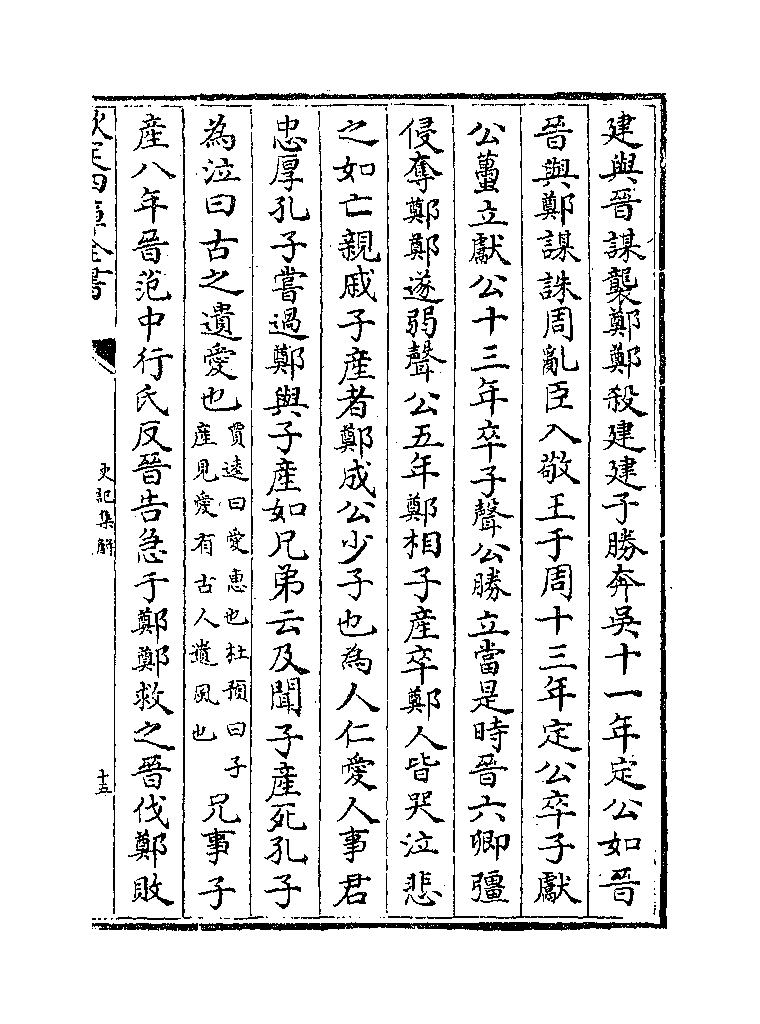 建與晉謀襲鄭鄭殺建建子勝奔吳十一年定公如晉
晉與鄭謀誅周亂臣入敬王于周十三年定公卒子獻
公蠆立獻公十三年卒子聲公勝立當是時晉六卿彊
侵奪鄭鄭遂弱聲公五年鄭相子產卒鄭人皆哭泣悲
之如亡親戚子產者鄭成公少子也為人仁愛人事君
忠厚孔子嘗過鄭與子產如兄弟云及聞子產死孔子
為泣曰古之遺愛也賈逵曰愛惠也杜預曰子產見愛有古人遺風也兄事子
產八年晉范中行氏反晉告急于鄭鄭救之晉伐鄭敗
欽定四庫全書
史記集解
十五